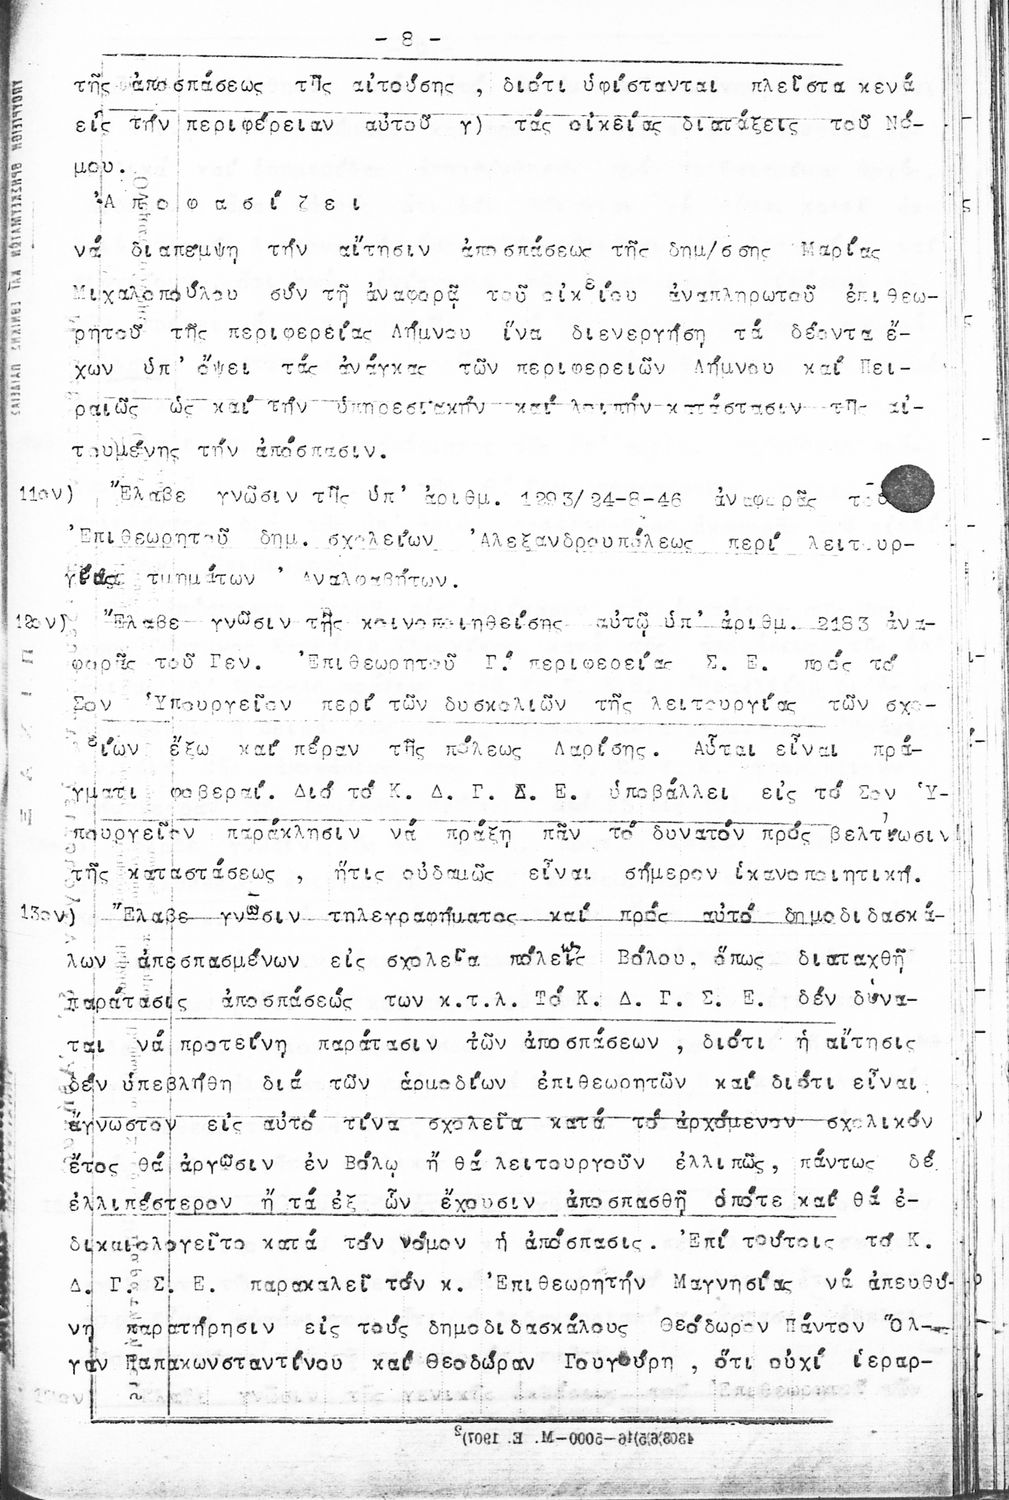 - 8 -
τῆς ἀποσπάσεως τῆς αἰτούσης , διότι ὑφίστανται πλεῖστα κενά
εἰς τήν περιφέρειαν αὐτοῦ γ) τάς οἰκείας διατάξεις τοῦ Νό-
μου.
Ἀ π ο φ α σ ί ζ ε ι
νά διαπέμψη τήν αἴτησιν ἀποσπάσεως τῆς δημ/σσης Μαρίας
Μιχαλοπούλου σύν τῇ ἀναφορᾷ τοῦ οἰκείου ἀναπληρωτοῦ ἐπιθεω-
ρητοῦ τῆς περιφερείας Λήμνου ἵνα διενεργήση τά δέοντα ἔ-
χων ὑπ' ὄψει τάς ἀνάγκας τῶν περιφερειῶν Λήμνου καί Πει-
ραιῶς ὡς καί τήν ὑπηρεσιακήν καί λοιπήν κατάστασιν τῆς αἰ-
τουμένης τήν ἀπόσπασιν.
11ον) Ἔλαβε γνῶσιν τῆς ὑπ' ἀριθμ. 1293/24-8-46 ἀναφορᾶς τοῦ
Ἐπιθεωρητοῦ δημ. σχολείων Ἀλεξανδρουπόλεως περί λειτουρ-
γίας τμημάτων Ἀναλφαβήτων.
12ον) Ἔλαβε γνῶσιν τῆς κοινοποιηθείσης αὐτῷ ὑπ' ἀριθμ. 2183 ἀνα-
φορᾶς τοῦ Γεν. Ἐπιθεωρητοῦ Γ.' περιφερείας Σ. Ε. πρός τό
Σον Ὑπουργεῖον περί τῶν δυσκολιῶν τῆς λειτουργίας τῶν σχο-
είων ἔξω καί πέραν τῆς πόλεως Λαρίσης. Αὗται εἶναι πρά-
γματι φοβεραί. Διό τό Κ. Δ. Γ. Σ. Ε. ὑποβάλλει εἰς τό Σον Ὑ-
πουργεῖον παράκλησιν νά πράξη πᾶν τό δυνατόν πρός βελτίωσιν
τῆς καταστάσεως , ἥτις οὐδαμῶς εἶναι σήμερον ἱκανοποιητική.
13ον) Ἔλαβε γνῶσιν τηλεγραφήματος καί πρός αὐτό δημοδιδασκά-
λων ἀπεσπασμένων εἰς σχολεῖα πόλεως Βόλου, ὅπως διαταχθῆ
παράτασις ἀποσπάσεώς των κ.τ.λ. Τό Κ. Δ. Γ. Σ. Ε. δέν δύνα-
ται νά προτείνη παράτασιν τῶν ἀποσπάσεων , διότι ἡ αἴτησις
δέν ὑπεβλήθη διά τῶν ἁρμοδίων ἐπιθεωρητῶν καί διότι εἶναι
ἄγνωστον εἰς αὐτό τίνα σχολεῖα κατά τό ἀρχόμενον σχολικόν
ἔτος θά ἀργῶσιν ἐν Βόλῳ ἤ θά λειτουργοῦν ἐλλιπῶς, πάντως δέ
ἐλλιπέστερον ἤ τά ἐξ ὧν ἔχουσιν ἀποσπασθῆ ὁπότε καί θά ἐ-
δικαιολογεῖτο κατά τόν νόμον ἡ ἀπόσπασις. Ἐπί τούτοις τό Κ.
Δ. Γ. Σ. Ε. παρακαλεῖ τόν κ. Ἐπιθεωρητήν Μαγνησίας νά ἀπευθύ-
νη παρατήρησιν εἰς τούς δημοδιδασκάλους Θεόδωρον Πάντον Ὄλ-
γαν Παπακωνσταντίνου καί Θεοδώραν Γουγούρη , ὅτι οὐχί ἱεραρ-